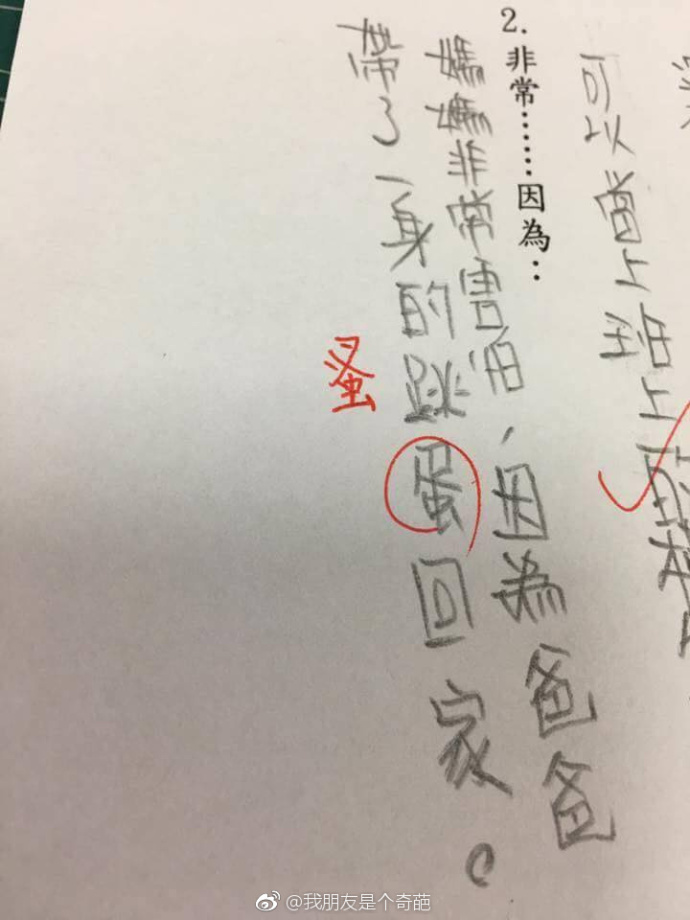 可以當上班上
2.非常……因為：
媽媽非常害怕，因為爸爸
帶了一身的跳蛋回家。
蚤
@我朋友是个奇葩